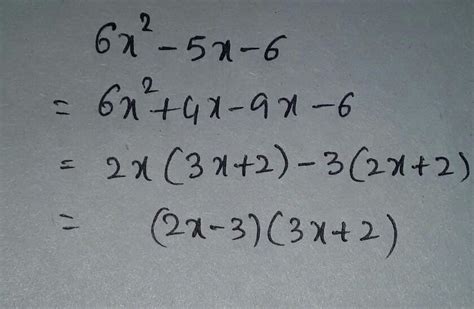 6x² - 5x - 6
= 6x² + 4x - 9x - 6
= 2x (3x + 2) - 3 (2x + 2)
= (2x - 3) (3x + 2)